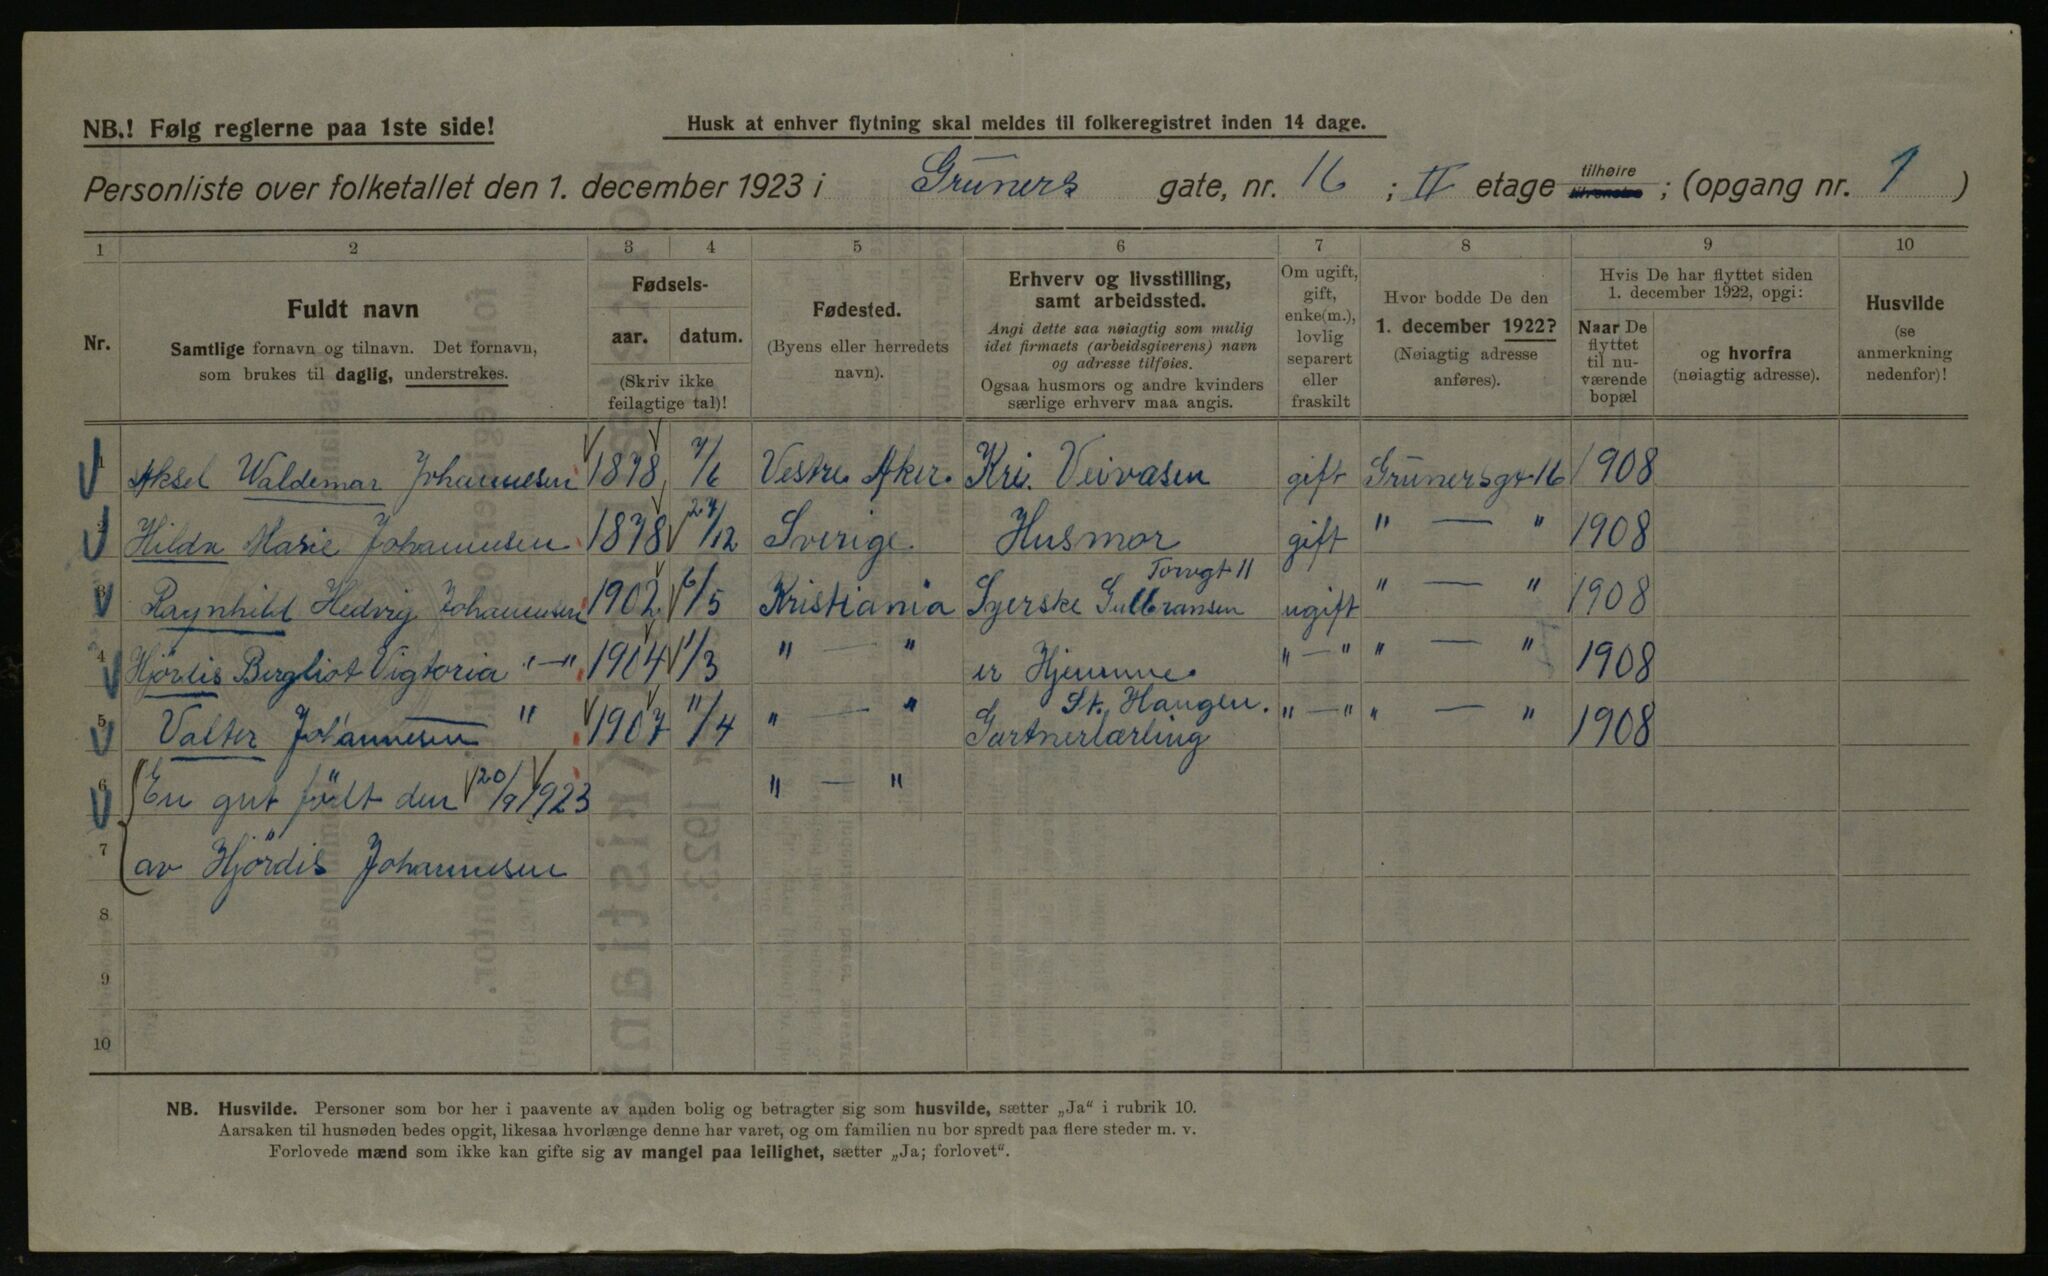 NB.! Følg reglerne paa 1ste side!
Husk at enhver flytning skal meldes til folkeregistret inden 14 dage.
Personliste over folketallet den 1. december 1923 i Grüners gate, nr. 16 ; II etage tilhøire tilvenstre ; (opgang nr. 1 )
1 2 3 4 5 6 7 8 9 10
Nr.
Fuldt navn
Samtlige fornavn og tilnavn. Det fornavn,
som brukes til daglig, understrekes.
Fødsels-
aar. datum.
(Skriv ikke
feilagtige tal)!
Fødested.
(Byens eller herredets
navn).
Erhverv og livsstilling,
samt arbeidssted.
Angi dette saa nøiagtig som mulig
idet firmaets (arbeidsgiverens) navn
og adresse tilføies.
Ogsaa husmors og andre kvinders
særlige erhverv maa angis.
Om ugift,
gift,
enke(m.),
lovlig
separert
eller
fraskilt
Hvor bodde De den
1. december 1922?
(Nøiagtig adresse
anføres).
Hvis De har flyttet siden
1. december 1922, opgi:
Naar De
flyttet
til nu-
værende
bopæl
og hvorfra
(nøiagtig adresse).
Husvilde
(se
anmerkning
nedenfor)!
1 Aksel Waldemar Johannesen 1878 7/6 Vestre Aker. Kri. Veivæsen gift Grünersgt 16 1908
2 Hilda Marie Johannesen 1878 27/12 Sverige. Husmor gift " — " 1908
3 Raynhild Hedvig Johannesen 1902 6/5 Kristiania Syerske Gulbransen Torvgt 11 ugift " — " 1908
4 Hjördis Bergliot Vigtoria "—" 1904 1/3 " — " er Hjemme. "—" " — " 1908
5 Valter Johannesen " 1907 11/4 " — " St. Haugen. Gartnerlærling "—" " — " 1908
6 En gut födt den 20/9 1923 " — "
7 av Hjördis Johannesen
8
9
10
NB. Husvilde. Personer som bor her i paavente av anden bolig og betragter sig som husvilde, sætter „Ja“ i rubrik 10.
Aarsaken til husnøden bedes opgit, likesaa hvorlænge denne har varet, og om familien nu bor spredt paa flere steder m. v.
Forlovede mænd som ikke kan gifte sig av mangel paa leilighet, sætter „Ja; forlovet“.